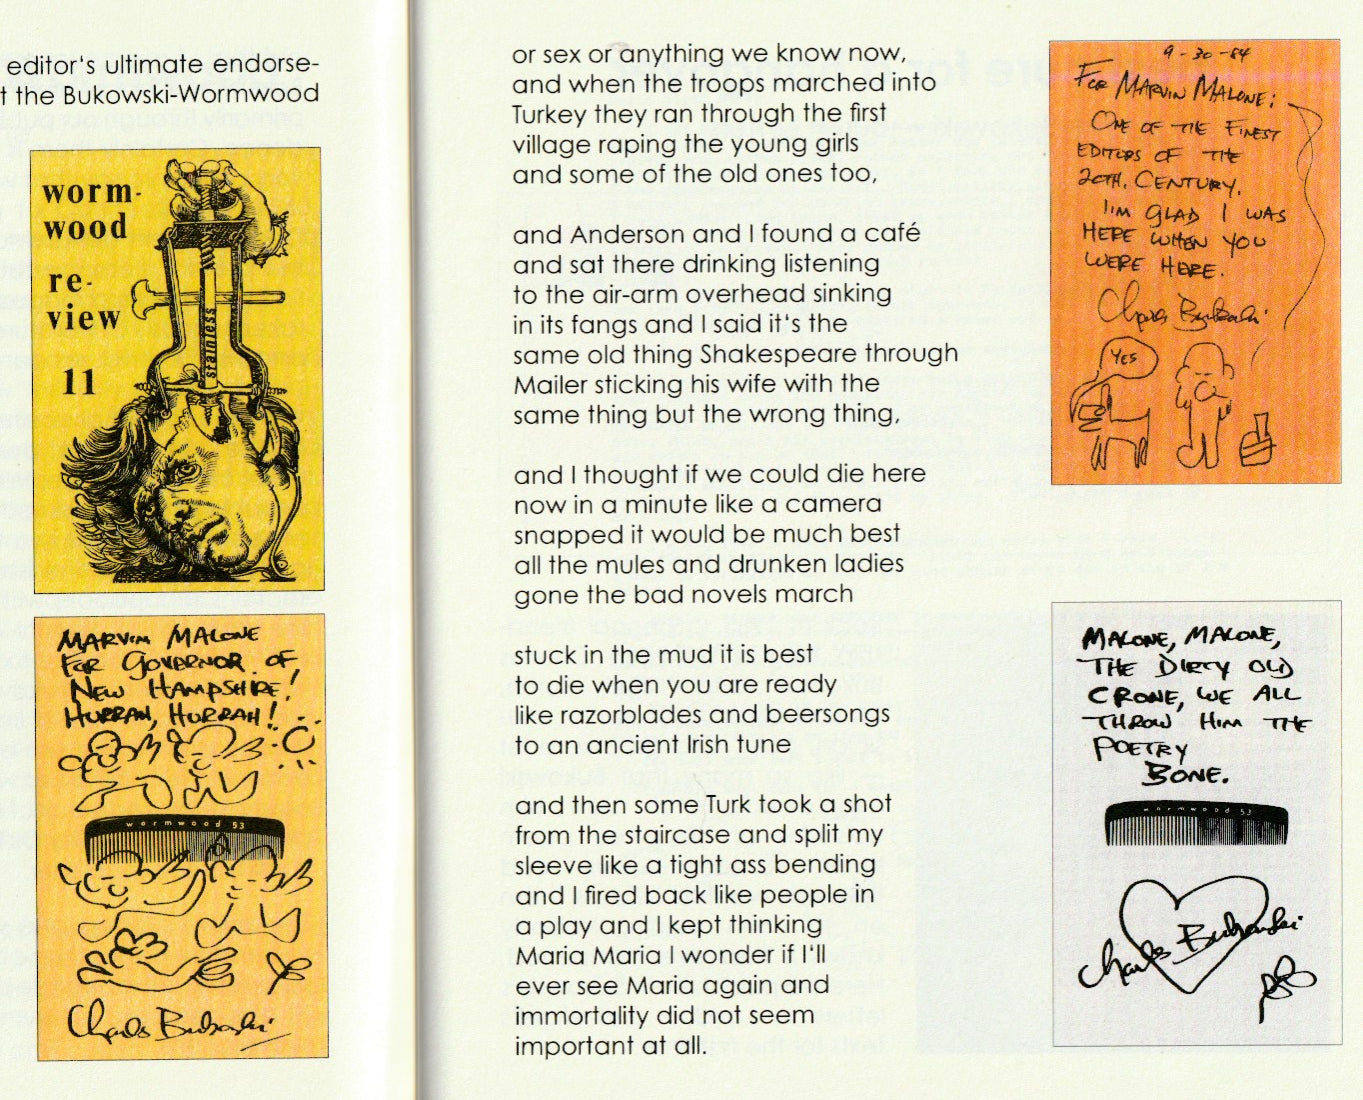 editor's ultimate endorse-
t the Bukowski-Wormwood
worm-
wood
re-
view
11
stainless
MARVIN MALONE
FOR GOVERNOR OF
NEW HAMPSHIRE!
HURRAH, HURRAH!
wormwood 53
Charles Bukowski
or sex or anything we know now,
and when the troops marched into
Turkey they ran through the first
village raping the young girls
and some of the old ones too,
and Anderson and I found a café
and sat there drinking listening
to the air-arm overhead sinking
in its fangs and I said it's the
same old thing Shakespeare through
Mailer sticking his wife with the
same thing but the wrong thing,
and I thought if we could die here
now in a minute like a camera
snapped it would be much best
all the mules and drunken ladies
gone the bad novels march
stuck in the mud it is best
to die when you are ready
like razorblades and beersongs
to an ancient Irish tune
and then some Turk took a shot
from the staircase and split my
sleeve like a tight ass bending
and I fired back like people in
a play and I kept thinking
Maria Maria I wonder if I'll
ever see Maria again and
immortality did not seem
important at all.
9-30-84
FOR MARVIN MALONE:
ONE OF THE FINEST
EDITORS OF THE
20TH. CENTURY.
I'M GLAD I WAS
HERE WHEN YOU
WERE HERE.
Charles Bukowski
YES
MALONE, MALONE,
THE DIRTY OLD
CRONE, WE ALL
THROW HIM THE
POETRY
BONE.
wormwood 53
Charles Bukowski